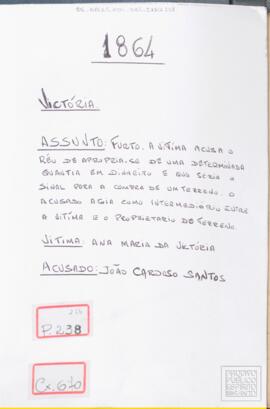 1864
VICTÓRIA
ASSUNTO: FURTO. A VÍTIMA ACUSA O
RÉU DE APROPRIA-SE DE UMA DETERMINADA
QUANTIA EM DINHEIRO E QUE SERIA O
SINAL PARA A COMPRA DE UM TERRENO. O
ACUSADO AGIA COMO INTERMEDIARIO ENTRE
A VÍTIMA E O PROPRIETARIO DE TERRENO.
VITIMA: ANA MARIA DA VITÓRIA
ACUSADO: JOÃO CARDOSO SANTOS
P.238
Cx.670
ARQUIVO
PÚBLICO
ESPÍRITO
SANTO